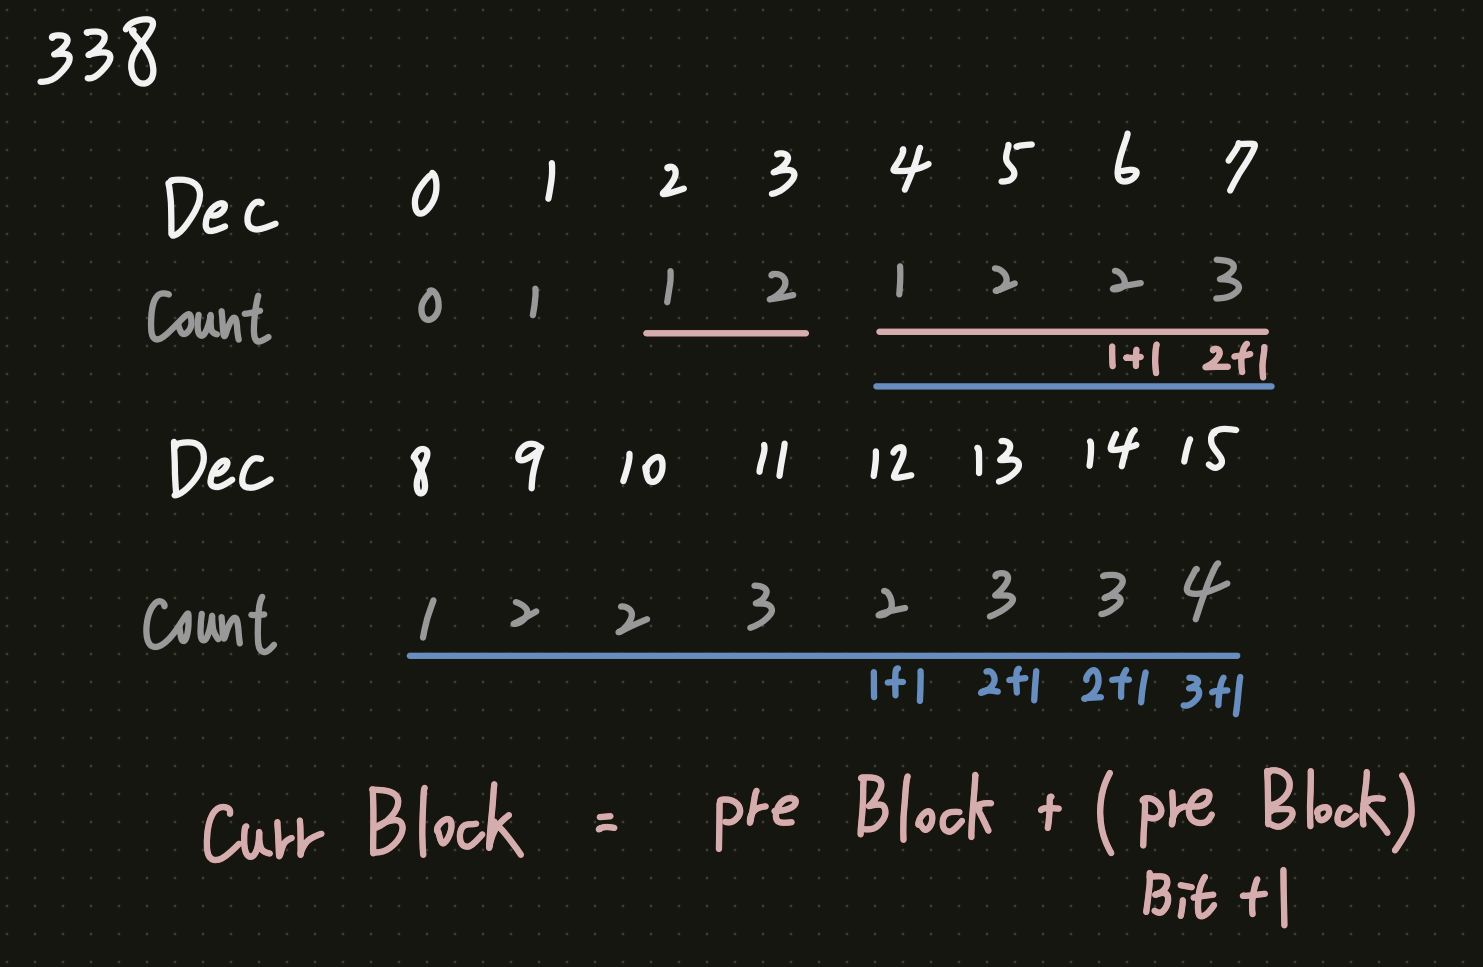 338
Dec 0 1 2 3 4 5 6 7
Count 0 1 1 2 1 2 2 3
1+1 2+1
Dec 8 9 10 11 12 13 14 15
Count 1 2 2 3 2 3 3 4
1+1 2+1 2+1 3+1
Curr Block = pre Block + (pre Block)
Bit +1